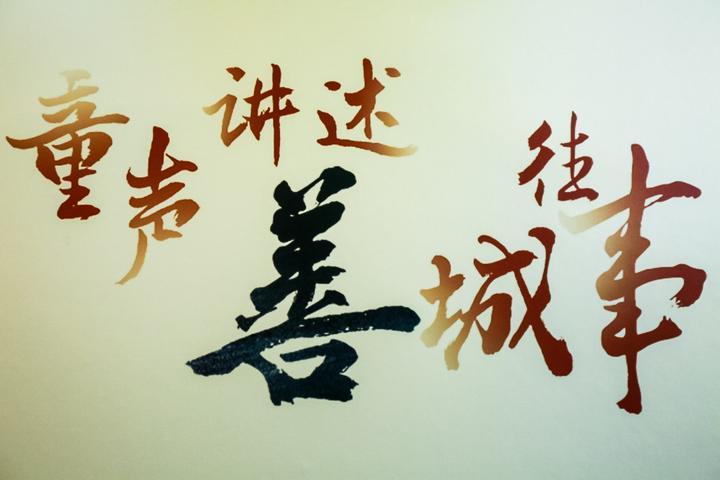 童声
讲述
善城
往事